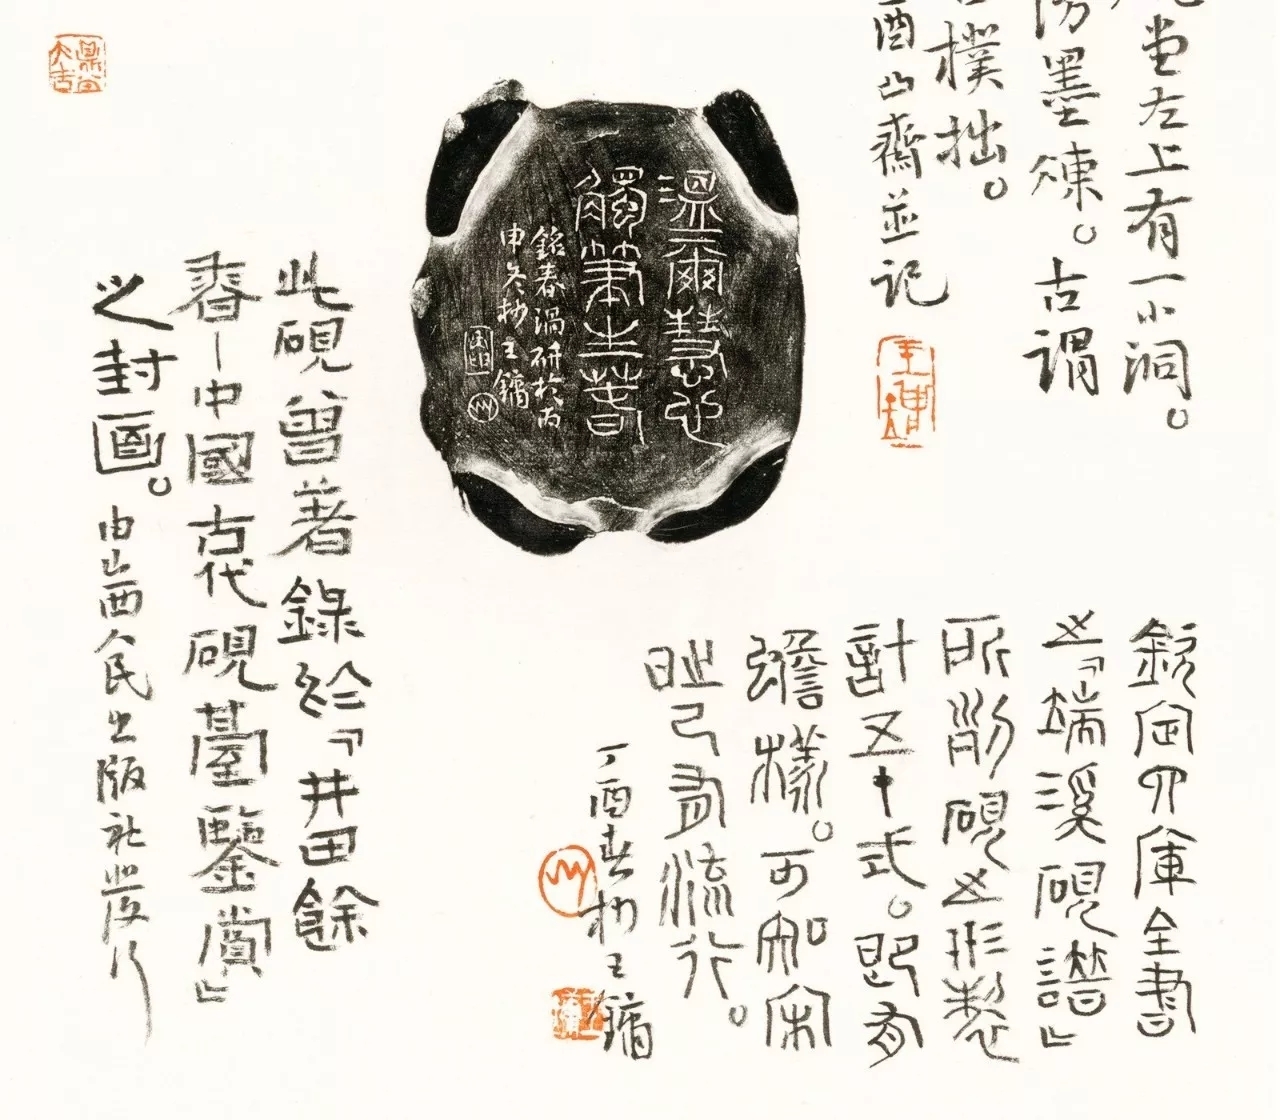 堂左上有一小洞。
墨煉。古謂
樸拙。
酉山齋並記
溫爾慧心
觸筆生春
銘春渦研於丙
申冬杪王鏞
欽定四庫全書
之「端溪硯譜」
所別硯之形製
計五十式。即有
蟾樣。可知宋
時已有流行。
丁酉春杪王鏞
此硯曾著錄於「井田餘
香—中國古代硯臺鑒賞」
之封面。由山西人民出版社發行